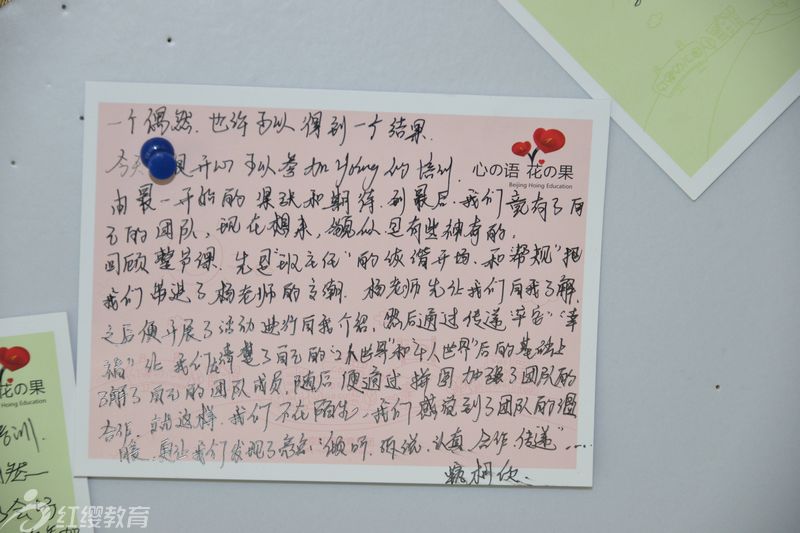 一个偶然，也许可以得到一个结果.
今天 很开心可以参加 young 的培训.
由最一开始的 紧张和期待，到最后，我们就有了自
己的团队，现在想来，貌似是有些神奇的.
回顾整节课，先是“班主任”的诙谐开场，和“帮规”把
我们带进了杨老师的 . 杨老师先让我们自我了解，
之后便开展了活动进行自我介绍，然后通过传递“平安”“幸
福”让我们在清楚了自己的 “和“ 人世界”后的基础上
了解了自己的团队成员，随后便通过拼图加强了团队的
合作，就这样，我们不在陌生，我们感觉到了团队的温
暖，更让我们发现了亮点：“倾听、 、认真、合作、传递”……
心の语 花の果
Beijing Hoing Education
花の果
Hoing Education
培训.
红缨教育